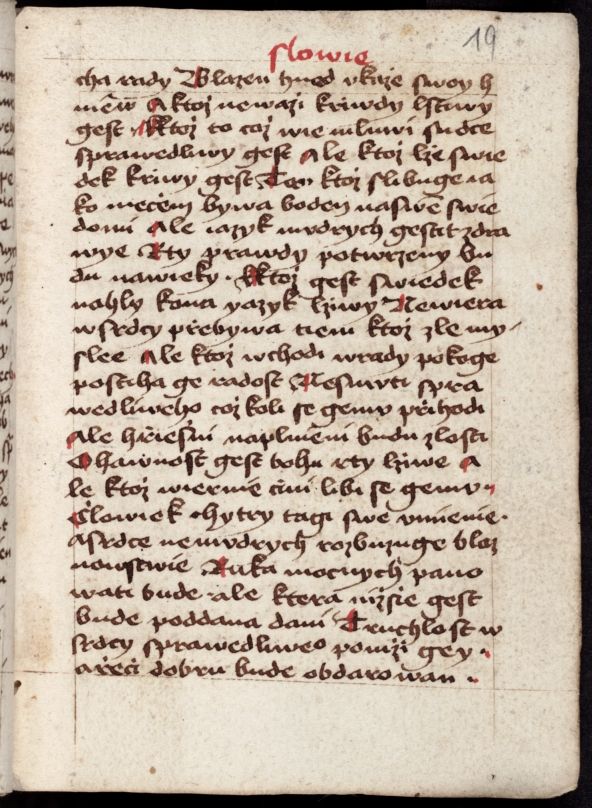 slowie
19
cha rady Blazen hned vkaze swoy h
niew A ktoz newazi kriwdy lstiwy
gest Ktoz to coz wie mluwi sudce
sprawedliwy gest Ale ktoz lze swie
dek kriwy gest Ten ktoz slibuge ia
ko mecem bywa boden naswe swie
domi Ale iazyk mudrych gestit zdra
wye Rty prawdy potwrzeny bu
du nawieky Ktoz gest swiedek
nahly kona yazyk lziwy Newiera
wsrdcy přebywa tiem ktoz zle my
slee Ale ktoz wchodi wrady pokoge
postiha ge radost Nesmuti spra
wedliweho coz koli se gemu přihodi
Ale hřiešni naplnieni budu zlosti
Ohawnost gest bohu rty lziwe A
le ktoz wiernie cini libi se gemu
Člowiek chytry tagi swe vmienie
asrdce nemudrych rozbuzuge blaz
nowstwie Ruka mocnych pano
wati bude ale ktera nizsie gest
bude poddana dani Truchlost w
srdcy sprawedliweo ponizi gey
ařeči dobru bude obdarowan